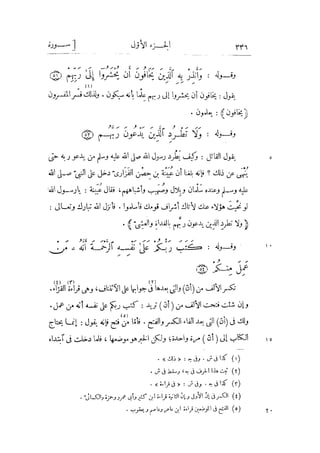 ٣٣٦ الجـزء الأول [ سـورة
وقـوله : ﴿وَأَنذِرْ بِهِ ٱلَّذِينَ يَخَافُونَ أَن يُحْشَرُوٓا۟ إِلَىٰ رَبِّهِمْ ٥١﴾
يقول : يخافون أن يحشروا إلى ربهم علما بأنه سيكون . ولذلك فسّر المفسرون
﴿يخافون﴾ (١) : يعلمون .
وقـوله : ﴿وَلَا تَطْـرُدِ ٱلَّذِينَ يَدْعُونَ رَبَّهُـم ٥٢﴾
٥ يقول القائل : وكيف يَطْرد رسول الله صلى الله عليه وسلم من يدعو ربه حتى
يُنْهَى عن ذلك ؟ فإنه بلغنا أن عُيَيْنة بن حِصْن الفَزَارىّ دخل على النبىّ صلى الله
عليه وسلم وعنده سَلْمان وبِلال وصُهَيب وأشباههم، فقال عُيَيْنة : يارسـول الله
لو نحّيت هؤلاء عنك لأتاك أشراف قومك فأسلموا . فأنزل الله تبارك وتعـالى :
﴿ ولا تطرد الذين يدعون ربهم بالغداة والعشىّ ﴾ .
١٠ وقـوله : ﴿كَتَبَ رَبُّكُمْ عَلَىٰ نَفْسِـهِ ٱلرَّحْمَـةَ أَنَّهُۥ مَـنْ
عَمِلَ مِنكُـمْ ٥٤﴾
تكسر الألف من (أن) والتى بعدها فى جوابها على الائتناف، وهى قراءة القُرّاء.
وإن شئت فتحت الألف من (أن) تريد : كتب ربكم على نفسه أنه من عمل.
ولك فى (أن) التى بعد الفاء الكسر والفتح . فأمّا من فتح فإنه يقول : إنمـا يحتاج
١٥ الكتاب إلى (أن) مرة واحدة؛ ولكن الخبر هو موضعها ، فلما دخلت فى ابتداء
(١) كذا فى ش . وفى ج : « ذلك » .
(٢) ثبت هذا الحرف فى ج، وسقط فى ش .
(٣) كذا فى ج. وفى ش : « قراءة » .
(٤) الكسر فى إنّ الأولى وإنّ الثانية قراءة ابن كثير وأبى عمرو وحمزة والكسائىّ.
٢٠ (٥) الفتح فى الموضعين قراءة ابن عامر وعاصم ويعقوب .